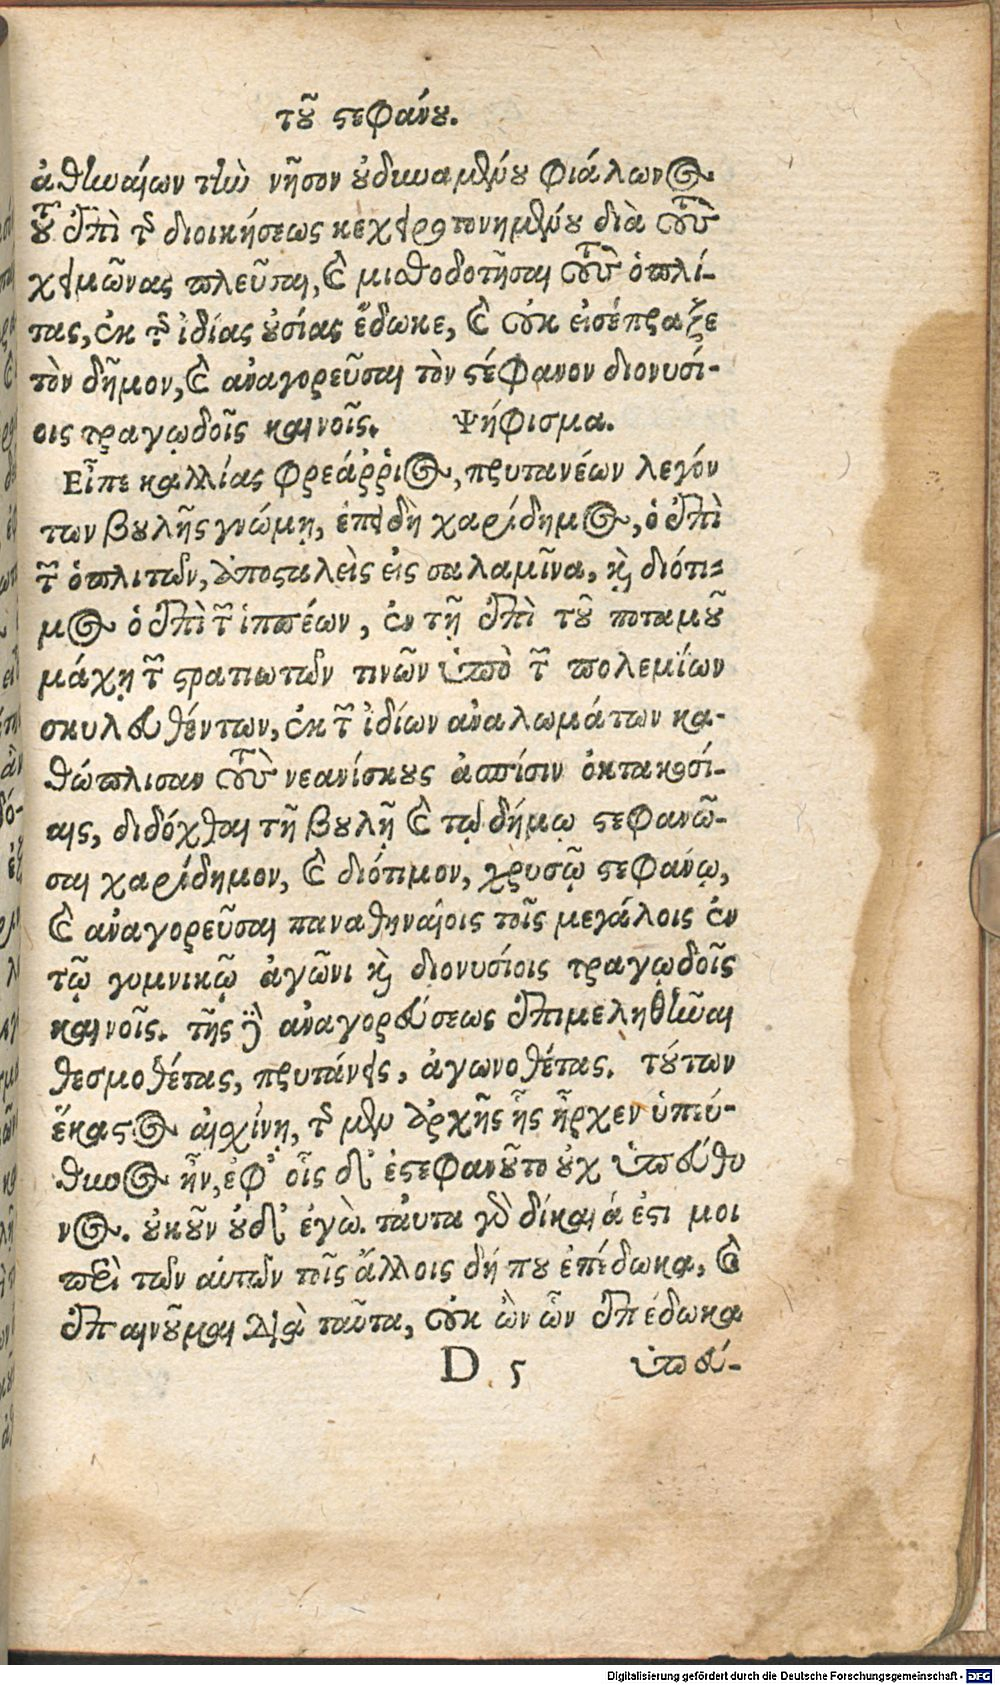 τοῦ στεφάνου.
ἀθηναίων τὴν νῆσον οὐδυναμένου φιάλωνος
τοῦ ἐπὶ τῆς διοικήσεως κεχειροτονημένου διὰ τοὺς
χειμῶνας πλεῦσαι, καὶ μισθοδοτῆσαι τοὺς ὁπλί-
τας, ἐκ τῆς ἰδίας οὐσίας ἔδωκε, καὶ οὐκ εἰσέπραξε
τὸν δῆμον, καὶ ἀναγορεῦσαι τὸν στέφανον διονυσί-
οις τραγῳδοῖς καινοῖς. Ψήφισμα.
Εἶπε καλλίας φρεάῤῥιος, πρυτανέων λεγόν
των βουλῆς γνώμῃ, ἐπειδὴ χαρίδημος, ὁ ἐπὶ
τῶν ὁπλιτῶν, ἀποσταλεὶς εἰς σαλαμῖνα, καὶ διότι-
μος ὁ ἐπὶ τῶν ἱππέων, ἐν τῇ ἐπὶ τοῦ ποταμοῦ
μάχῃ τῶν στρατιωτῶν τινῶν ὑπὸ τῶν πολεμίων
σκυλευθέντων, ἐκ τῶν ἰδίων ἀναλωμάτων κα-
θώπλισαν τοὺς νεανίσκους ἀσπίσιν ὀκτακοσί-
αις, δεδόχθαι τῇ βουλῇ καὶ τῷ δήμῳ στεφανῶ-
σαι χαρίδημον, καὶ διότιμον, χρυσῷ στεφάνῳ,
καὶ ἀναγορεῦσαι παναθηναίοις τοῖς μεγάλοις ἐν
τῷ γυμνικῷ ἀγῶνι καὶ διονυσίοις τραγῳδοῖς
καινοῖς. τῆς δὲ ἀναγορεύσεως ἐπιμεληθῆναι
θεσμοθέτας, πρυτάνεις, ἀγωνοθέτας. τούτων
ἕκαστος αἰσχίνη, τῆς μὲν ἀρχῆς ἧς ἦρχεν ὑπεύ-
θυνος ἦν, ἐφ' οἷς δ' ἐστεφανοῦτο οὐχ ὑπεύθυ
νος. οὐκοῦν οὐδ' ἐγὼ. ταὐτα γὰρ δίκαιά ἐστι μοι
περὶ τῶν αὐτῶν τοῖς ἄλλοις δή που ἐπέδωκα, καὶ
ἐπαινοῦμαι διὰ ταῦτα, οὐκ ὢν ὧν ἐπέδωκα
D 5 ὑπεύ-
Digitalisierung gefördert durch die Deutsche Forschungsgemeinschaft - DFG